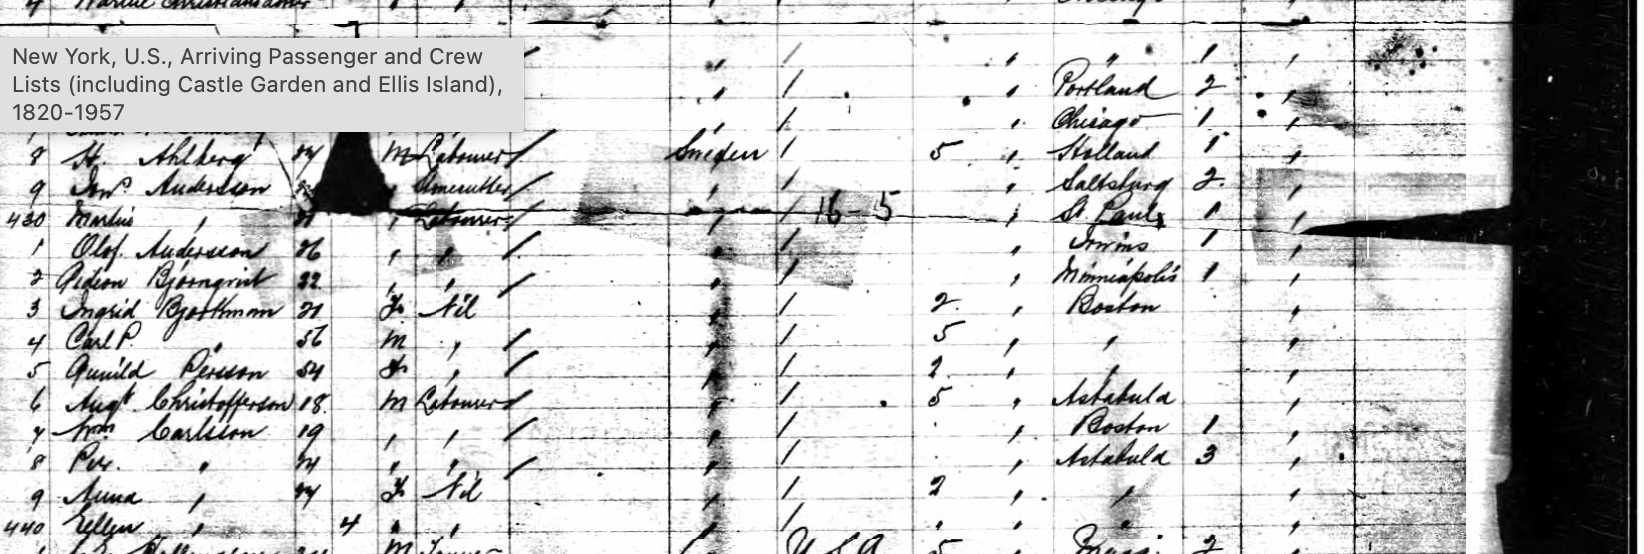 New York, U.S., Arriving Passenger and Crew
Lists (including Castle Garden and Ellis Island),
1820-1957
" 1
Portland 2
Chicago 1
8 Ahlberg 24 M Labourer / Sweden / 5 " Holland 1 "
9 Andersson " / " / " Saltsburg 2 "
430 Martin " 21 " Labourer / " / 16-5 " St Paul 1 "
1 Olof Andersson 26 " " / " / " 1 "
2 Gideon Bjornqvist 22 " " / " / " Minneapolis 1 "
3 Ingrid Bjorkman 21 F Nil " / 2 " Boston "
4 Carl P. " 56 M " / " / 5 " " "
5 Gunild Persson 54 F " / " / 2 " " "
6 Augt Christofferson 18 M Labourer / " / 5 " Astabula "
7 Wm Carlsson 19 " " / " / " Boston 1 "
8 Per. " 24 " " / " / " Astabula 3 "
9 Anna " 24 F Nil " / 2 " " "
440 Ellen " 4 " " / " " " "
M U S A 5 2